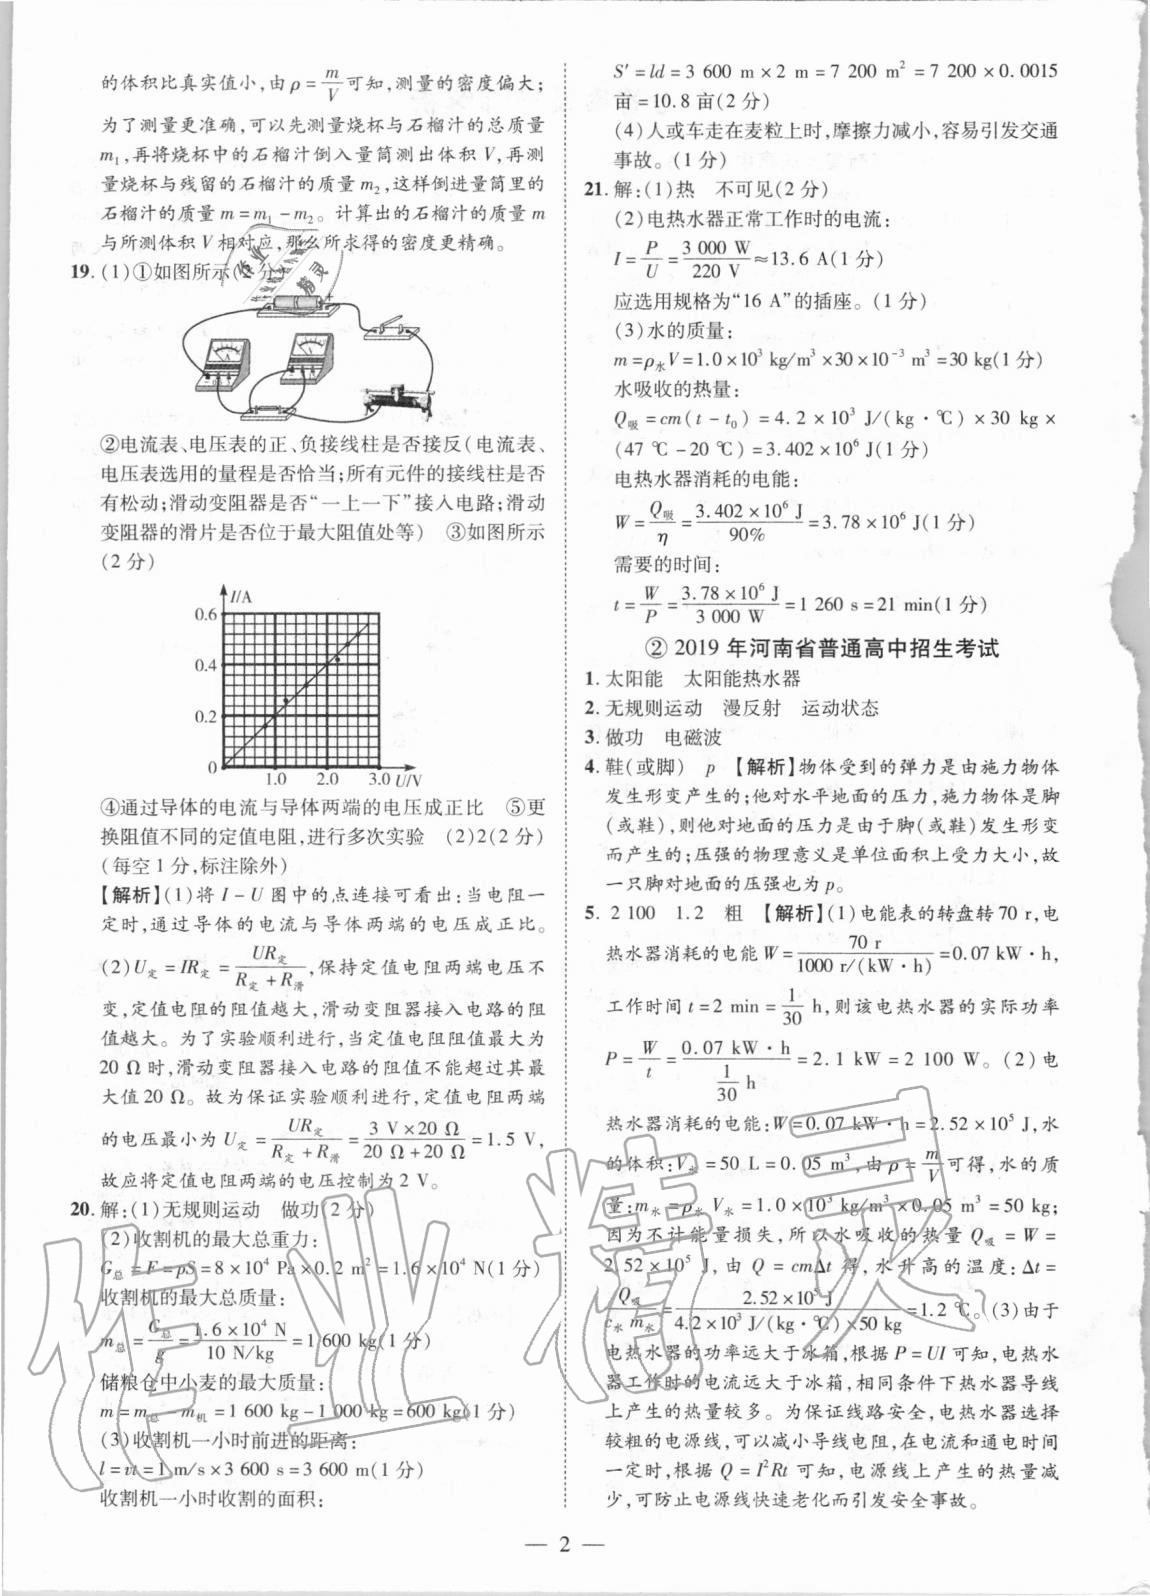 的体积比真实值小,由ρ=m/V可知,测量的密度偏大;
为了测量更准确,可以先测量烧杯与石榴汁的总质量
m₁,再将烧杯中的石榴汁倒入量筒测出体积V,再测
量烧杯与残留的石榴汁的质量m₂,这样倒进量筒里的
石榴汁的质量m=m₁-m₂。计算出的石榴汁的质量m
与所测体积V相对应,那么所求得的密度更精确。
19.(1)①如图所示( 分)
②电流表、电压表的正、负接线柱是否接反(电流表、
电压表选用的量程是否恰当;所有元件的接线柱是否
有松动;滑动变阻器是否“一上一下”接入电路;滑动
变阻器的滑片是否位于最大阻值处等) ③如图所示
(2分)
I/A
0.6
0.4
0.2
0
1.0 2.0 3.0 U/V
④通过导体的电流与导体两端的电压成正比 ⑤更
换阻值不同的定值电阻,进行多次实验 (2)2(2分)
(每空1分,标注除外)
【解析】(1)将I-U图中的点连接可看出:当电阻一
定时,通过导体的电流与导体两端的电压成正比。
(2)U定=IR定=UR定/(R定+R滑),保持定值电阻两端电压不
变,定值电阻的阻值越大,滑动变阻器接入电路的阻
值越大。为了实验顺利进行,当定值电阻阻值最大为
20 Ω时,滑动变阻器接入电路的阻值不能超过其最
大值20 Ω。故为保证实验顺利进行,定值电阻两端
的电压最小为U定=UR定/(R定+R滑)=3 V×20 Ω/(20 Ω+20 Ω)=1.5 V,
故应将定值电阻两端的电压控制为2 V。
20.解:(1)无规则运动 做功(2分)
(2)收割机的最大总重力:
G总=F=pS=8×10⁴ Pa×0.2 m²=1.6×10⁴ N(1分)
收割机的最大总质量:
m总=G总/g=1.6×10⁴ N/10 N/kg=1 600 kg(1分)
储粮仓中小麦的最大质量:
m=m总-m机=1 600 kg-1 000 kg=600 kg(1分)
(3)收割机一小时前进的距离:
l=vt=1 m/s×3 600 s=3 600 m(1分)
收割机一小时收割的面积:
S′=ld=3 600 m×2 m=7 200 m²=7 200×0.0015
亩=10.8亩(2分)
(4)人或车走在麦粒上时,摩擦力减小,容易引发交通
事故。(1分)
21.解:(1)热 不可见(2分)
(2)电热水器正常工作时的电流:
I=P/U=3 000 W/220 V≈13.6 A(1分)
应选用规格为“16 A”的插座。(1分)
(3)水的质量:
m=ρ水V=1.0×10³ kg/m³×30×10⁻³ m³=30 kg(1分)
水吸收的热量:
Q吸=cm(t-t₀)=4.2×10³ J/(kg·℃)×30 kg×
(47 ℃-20 ℃)=3.402×10⁶ J(1分)
电热水器消耗的电能:
W=Q吸/η=3.402×10⁶ J/90%=3.78×10⁶ J(1分)
需要的时间:
t=W/P=3.78×10⁶ J/3 000 W=1 260 s=21 min(1分)
② 2019年河南省普通高中招生考试
1.太阳能 太阳能热水器
2.无规则运动 漫反射 运动状态
3.做功 电磁波
4.鞋(或脚) p 【解析】物体受到的弹力是由施力物体
发生形变产生的;他对水平地面的压力,施力物体是脚
(或鞋),则他对地面的压力是由于脚(或鞋)发生形变
而产生的;压强的物理意义是单位面积上受力大小,故
一只脚对地面的压强也为p。
5.2 100 1.2 粗 【解析】(1)电能表的转盘转70 r,电
热水器消耗的电能W=70 r/1000 r/(kW·h)=0.07 kW·h,
工作时间t=2 min=1/30 h,则该电热水器的实际功率
P=W/t=0.07 kW·h/(1/30 h)=2.1 kW=2 100 W。(2)电
热水器消耗的电能:W=0.07 kW·h=2.52×10⁵ J,水
的体积:V水=50 L=0.05 m³,由ρ=m/V可得,水的质
量:m水=ρ水V水=1.0×10³ kg/m³×0.05 m³=50 kg;
因为不计能量损失,所以水吸收的热量Q吸=W=
2.52×10⁵ J,由Q=cmΔt得,水升高的温度:Δt=
Q吸/(c水m水)=2.52×10⁵ J/(4.2×10³ J/(kg·℃)×50 kg)=1.2 ℃。(3)由于
电热水器的功率远大于冰箱,根据P=UI可知,电热水
器工作时的电流远大于冰箱,相同条件下热水器导线
上产生的热量较多。为保证线路安全,电热水器选择
较粗的电源线,可以减小导线电阻,在电流和通电时间
一定时,根据Q=I²Rt可知,电源线上产生的热量减
少,可防止电源线快速老化而引发安全事故。
— 2 —
作业精灵
作业
精灵